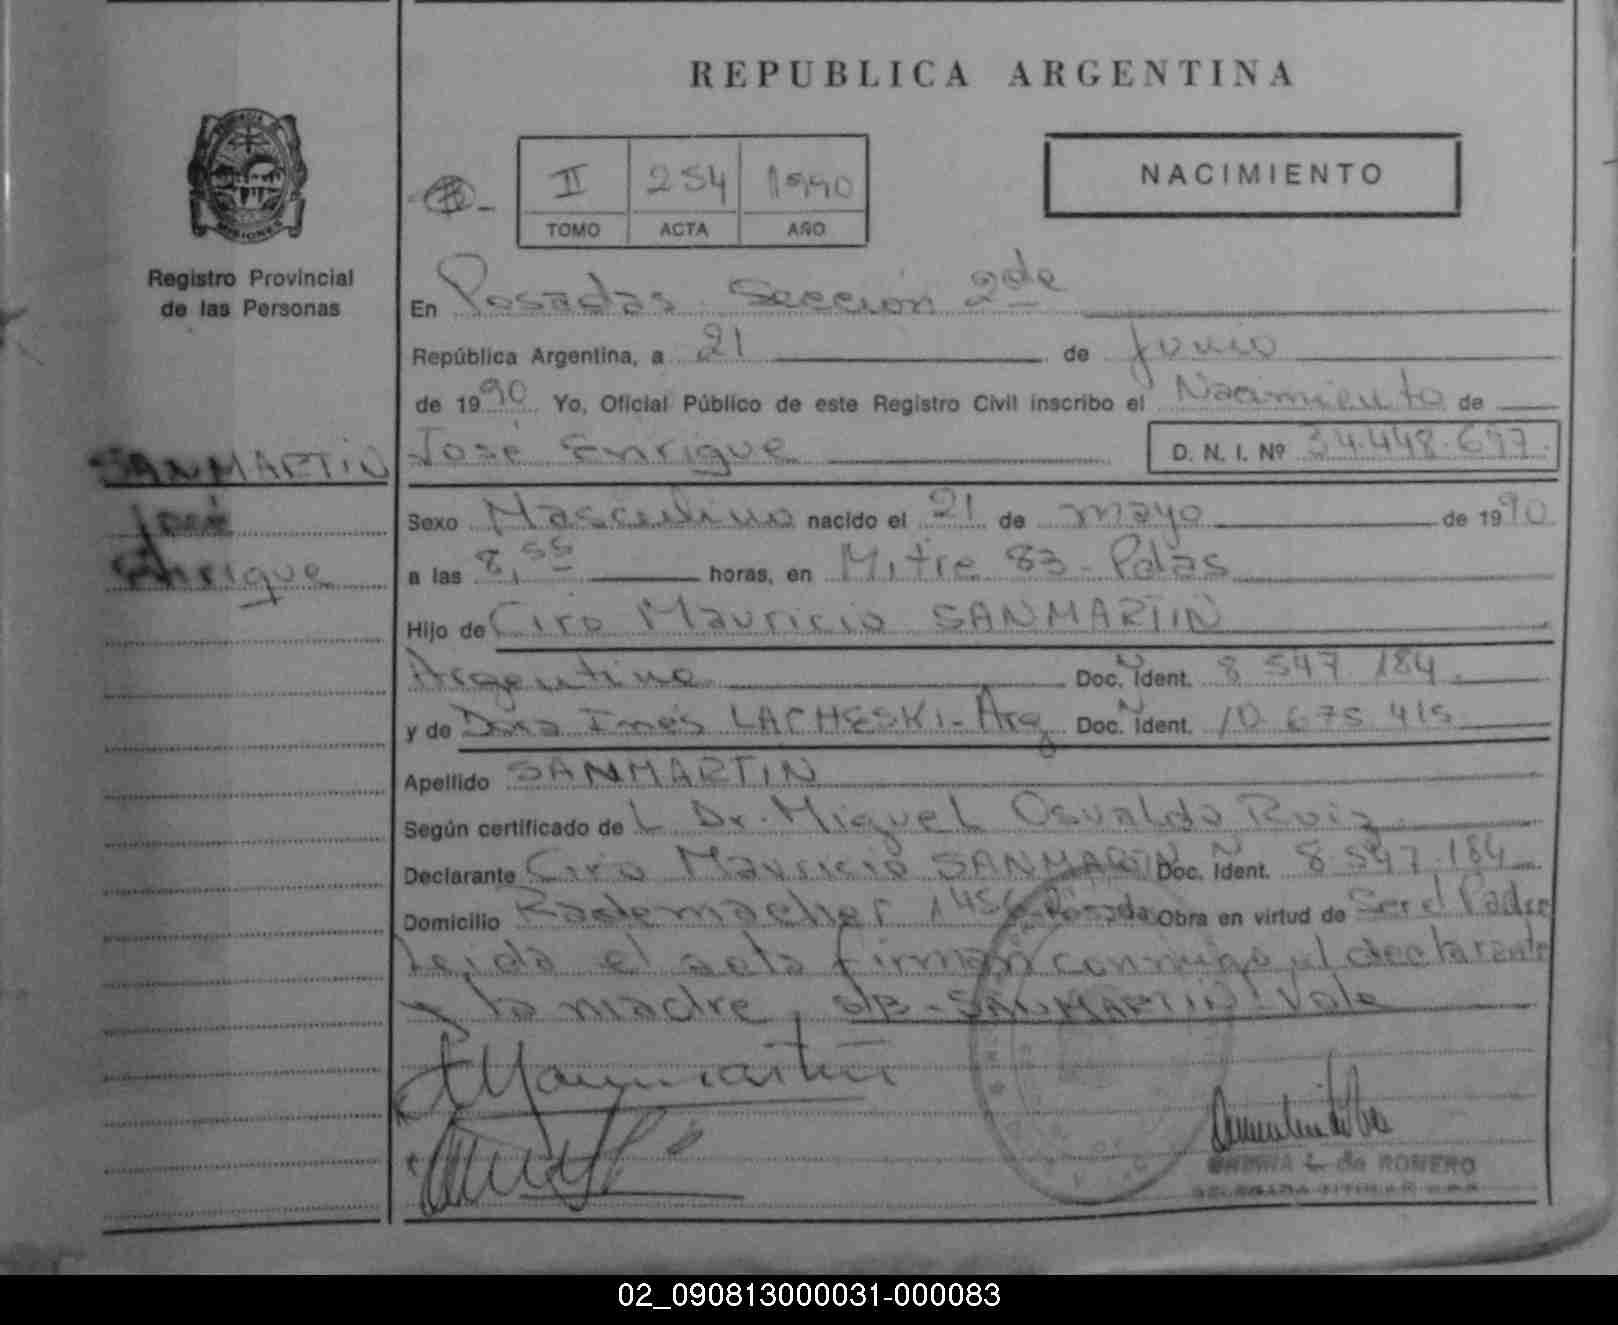 REPUBLICA ARGENTINA
NACIMIENTO
II 254 1990
TOMO ACTA AÑO
MISIONES
Registro Provincial
de las Personas
En Posadas Sección 2da
República Argentina, a 21 de Junio
de 1990 Yo, Oficial Público de este Registro Civil inscribo el Nacimiento de
SANMARTIN
José Enrique D. N. I. Nº 34.448.697.
José
Enrique
Sexo Masculino nacido el 21 de mayo de 1990
a las 8,55 horas, en Mitre 83 - Pdas
Hijo de Ciro Mauricio SANMARTIN
Argentino Doc. Ident. 8 547 184
y de Inés LACHESKI - Arg Doc. Ident. 10 675 415
Apellido SANMARTIN
Según certificado del Dr. Miguel Osvaldo Ruiz
Declarante Ciro Mauricio SANMARTIN Doc. Ident. 8.547.184
Domicilio Rademacher 1456 Posadas Obra en virtud de Ser el Padre
Leida el acta firman conmigo el declarante
y la madre, s/r - SANMARTIN: Vale
L. de ROMERO
DELEGADA TITULAR
02_090813000031-000083